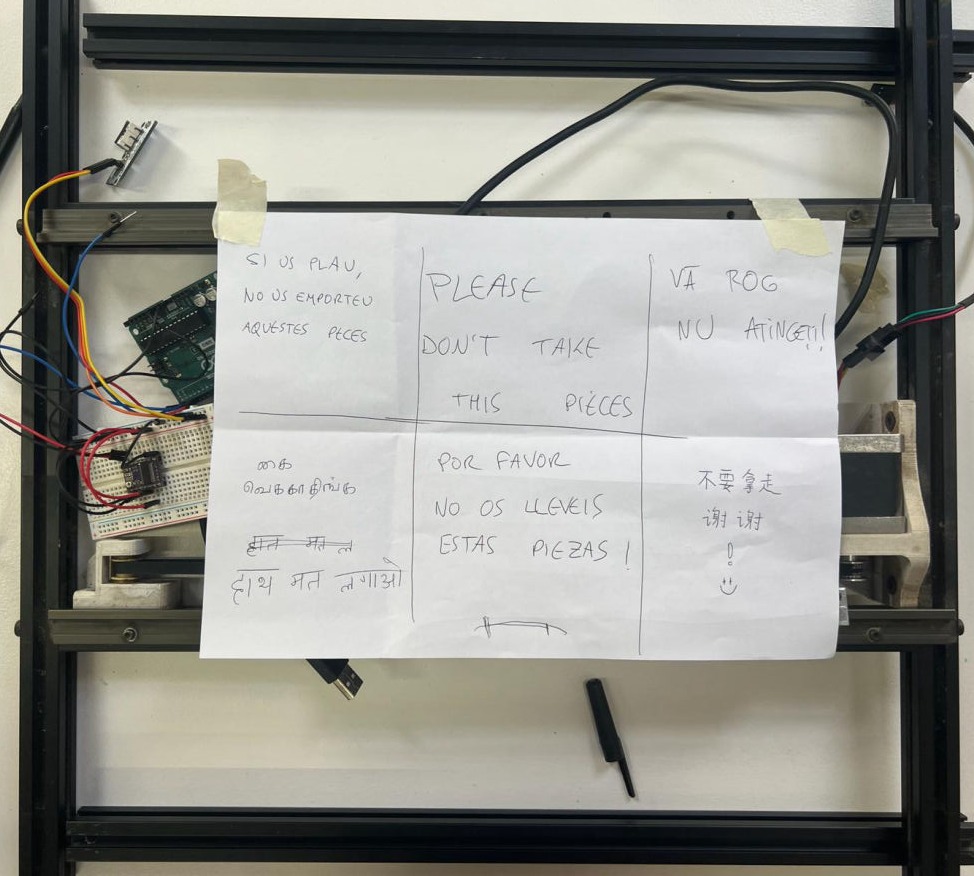 SI US PLAU,
NO US EMPORTEU
AQUESTES PECES
PLEASE
DON'T TAKE
THIS PIECES
VĂ ROG
NU ATINGEȚI!!
கை
வெக்காதிங்க
हात मत ल
हाथ मत लगाओ
POR FAVOR
NO OS LLEVEIS
ESTAS PIEZAS!
不要拿走
谢谢
!